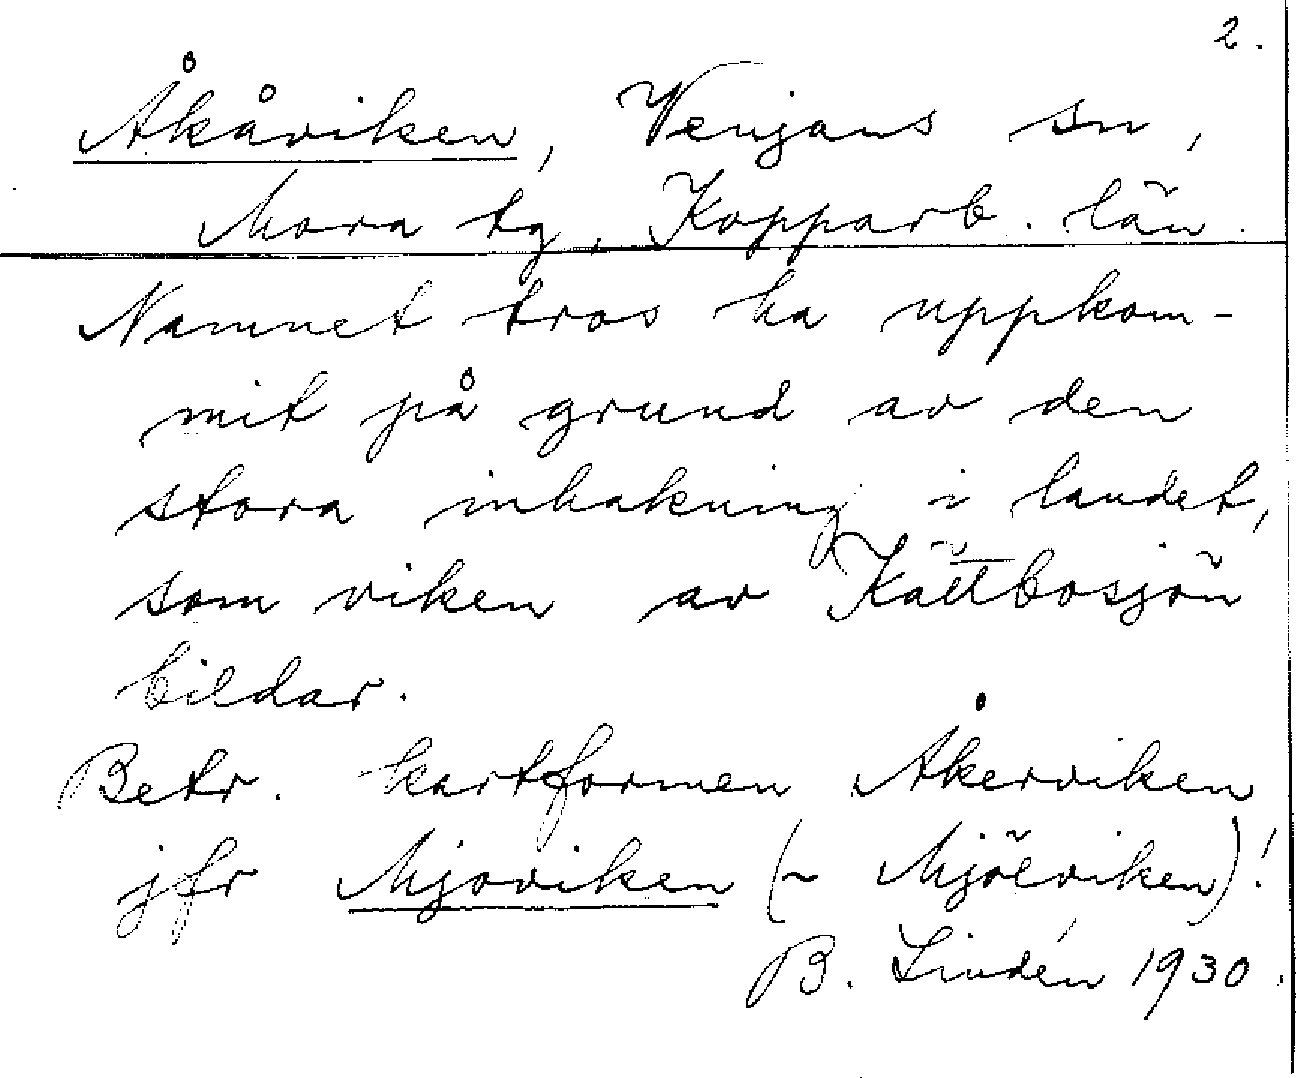 2.
Åkåviken, Venjans sn,
Mora tg, Kopparb. län.
Namnet tros ha uppkom-
mit på grund av den
stora inhakning i landet,
som viken av Kättbosjön
bildar.
Betr. kartformen Åkerviken
jfr Mjoviken (~ Mjölviken)!
B. Lindén 1930.